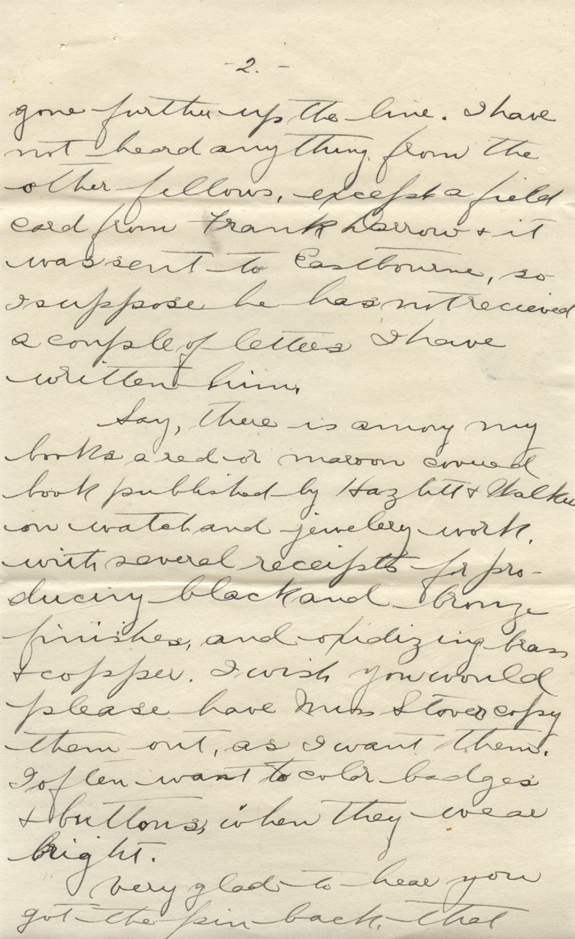 -2.-
gone further up the line. I have
not heard anything from the
other fellows, except a field
card from Frank Larrow & it
was sent to Eastbourne, so
I suppose he has not recieved
a couple of letters I have
written him.
Say, there is among my
books a red or maroon covered
book published by Hazlitt & Walker
on watch and jewelery work.
with several receipts for pro-
ducing black and bronze
finishes, and oxidizing brass
& copper. I wish you would
please have Miss Stover copy
them out, as I want them.
I often want to color badges
& buttons, when they wear
bright.
Very glad to hear you
got the pin back, that